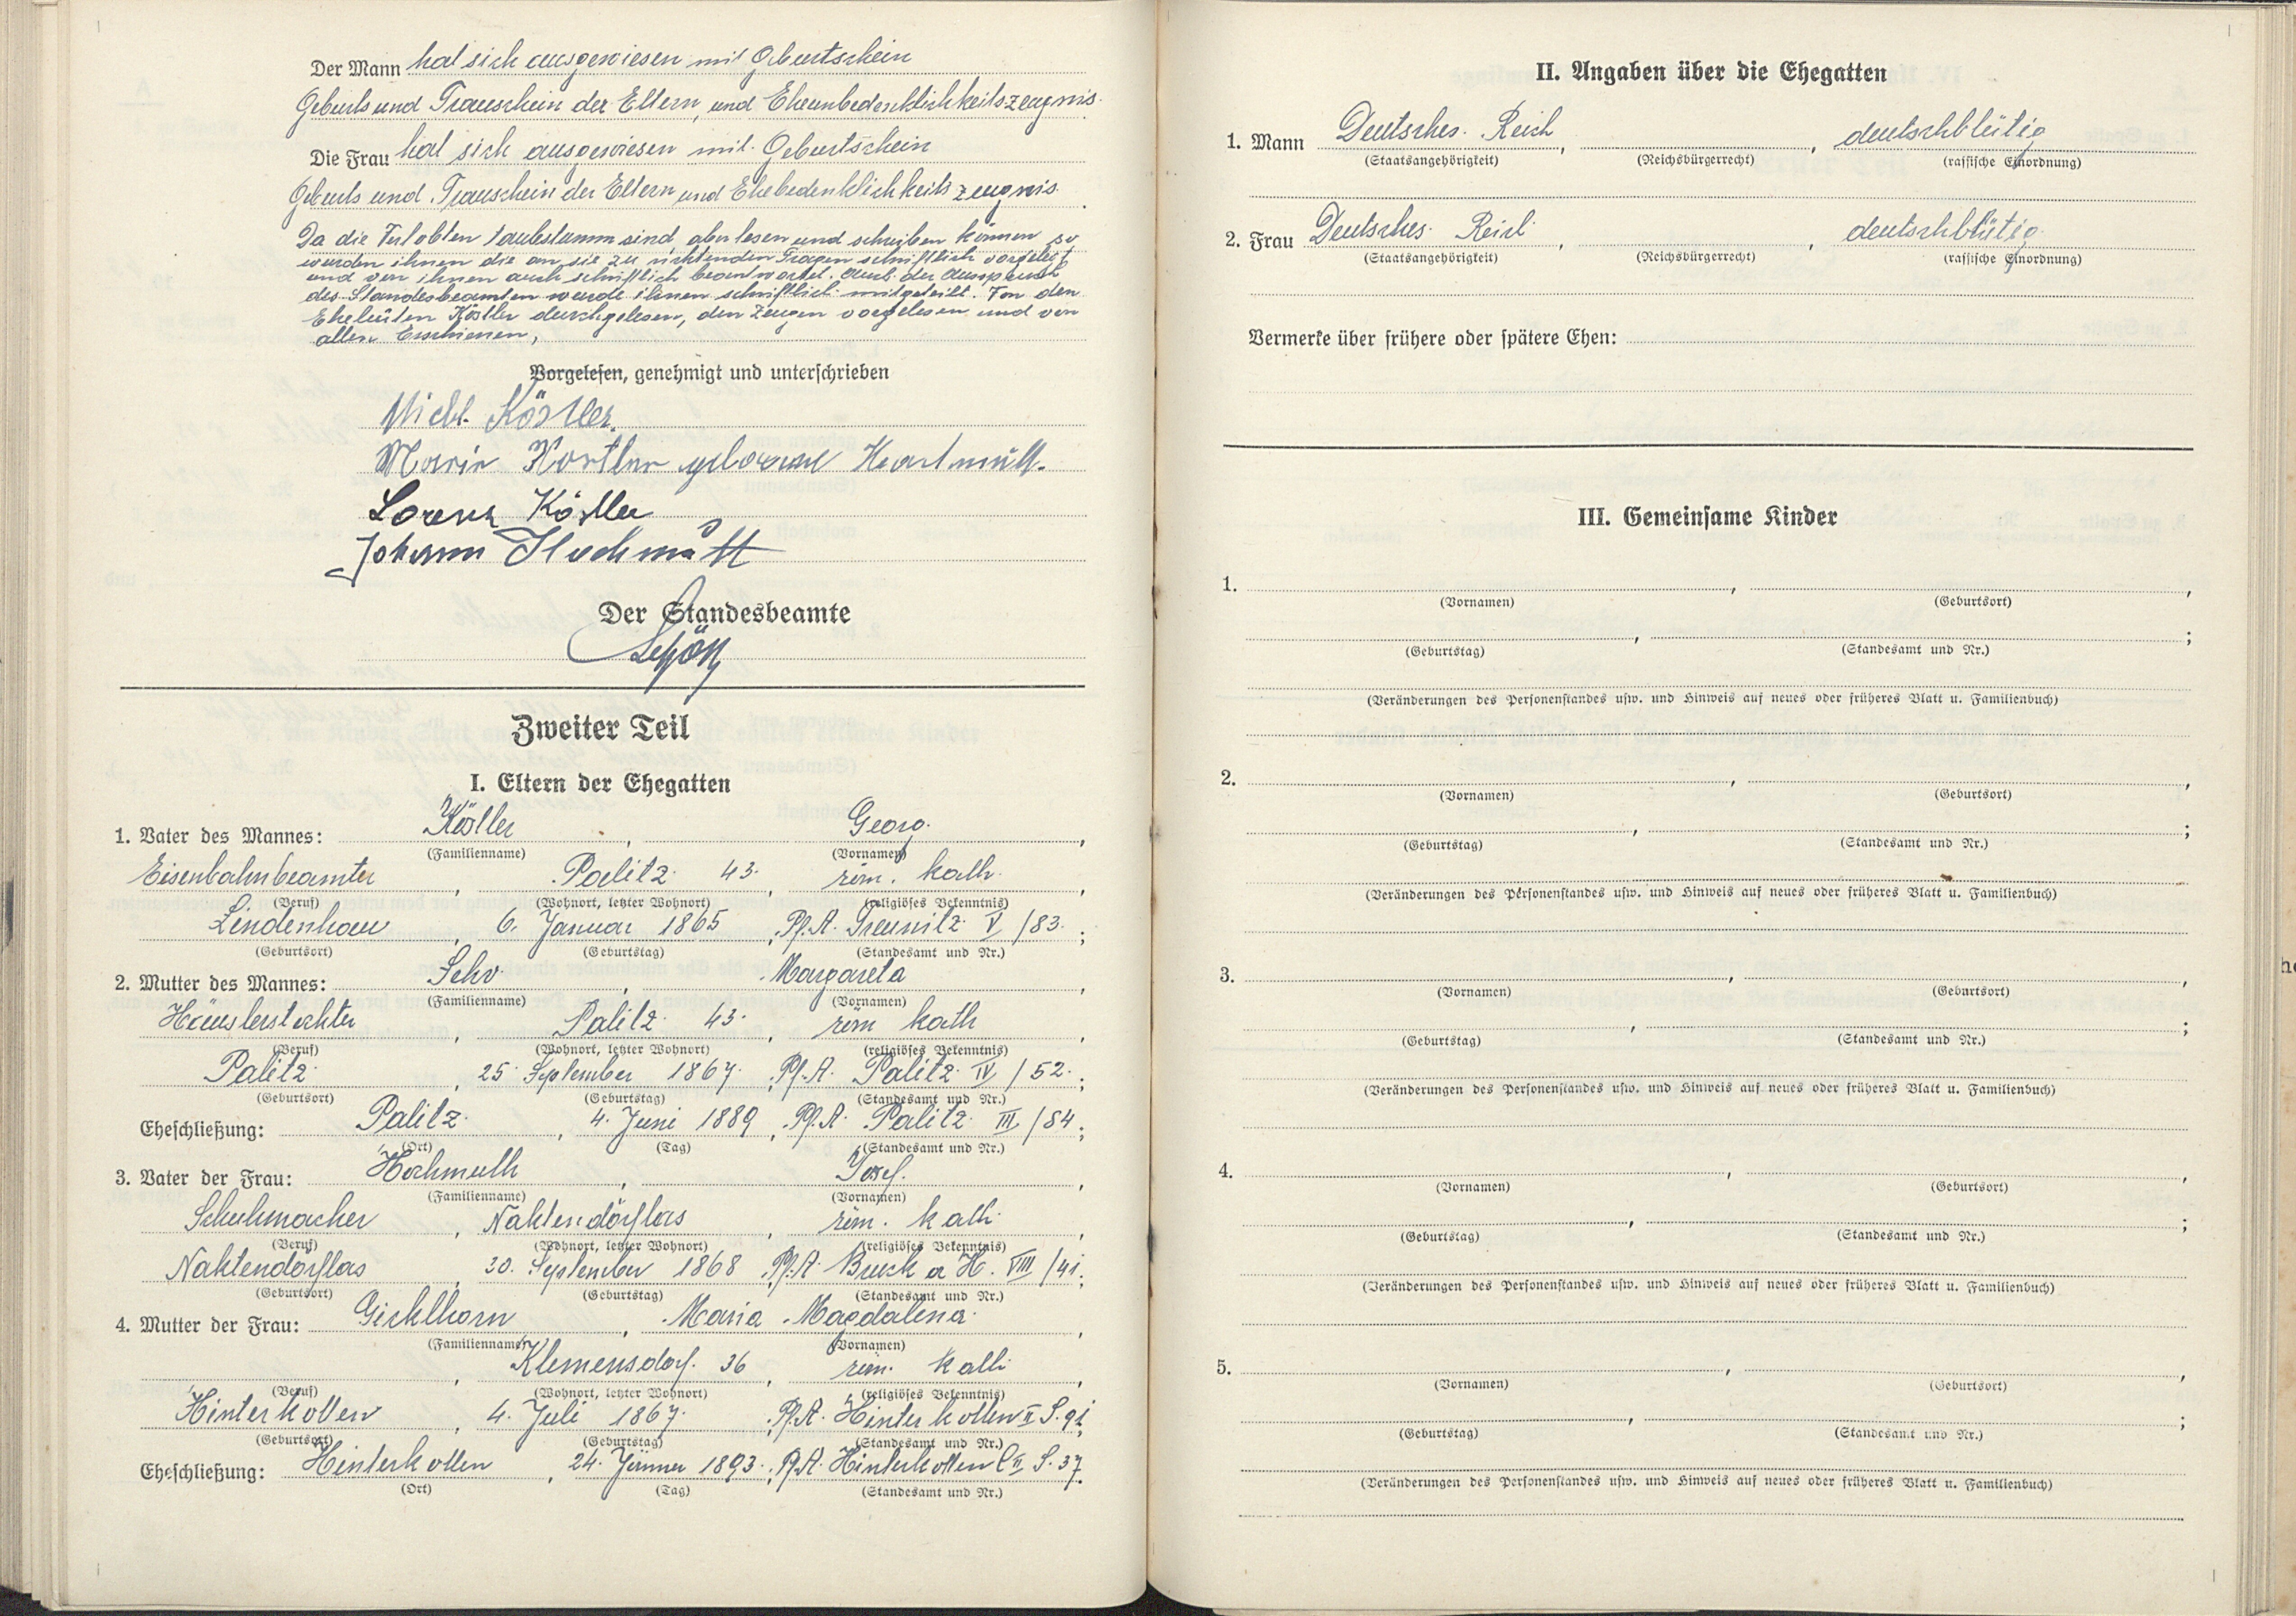 Der Mann hat sich ausgewiesen mit Geburtschein
Geburts und Trauschein der Eltern, und Eheunbedenklichkeitszeugnis.
Die Frau hat sich ausgewiesen mit Geburtschein
Geburts und Trauschein der Eltern und Ehebedenklichkeitszeugnis.
Da die Verlobten taubstumm sind, aber lesen und schreiben können, so
werden ihnen die an sie zu richtenden Fragen schriftlich vorgelegt
und von ihnen auch schriftlich beantwortet. Auch der Ausspruch
des Standesbeamten wurde ihnen schriftlich mitgeteilt. Von den
Eheleuten Köstler durchgelesen, den Zeugen vorgelesen und von
allen Erschienen,
Vorgelesen, genehmigt und unterschrieben
Michl. Köstler.
Maria Köstler geborene
Lorenz Köstler
Johann
Der Standesbeamte
Zweiter Teil
I. Eltern der Ehegatten
1. Vater des Mannes: Köstler, Georg.,
(Familienname) (Vornamen)
Eisenbahnbeamter, Palitz 43., röm. kath.,
(Beruf) (Wohnort, letzter Wohnort) (religiöses Bekenntnis)
Lindenhau, 6. Januar 1865, Pf.A. Treunitz V /83.;
(Geburtsort) (Geburtstag) (Standesamt und Nr.)
2. Mutter des Mannes: , Margareta,
(Familienname) (Vornamen)
Häuslerstochter, Palitz 43., röm kath,
(Beruf) (Wohnort, letzter Wohnort) (religiöses Bekenntnis)
Palitz, 25 September 1867., Pf.A. Palitz IV /52.;
(Geburtsort) (Geburtstag) (Standesamt und Nr.)
Eheschließung: Palitz., 4. Juni 1889, Pf.A. Palitz III /84;
(Ort) (Tag) (Standesamt und Nr.)
3. Vater der Frau: Hochmuth, Josef.,
(Familienname) (Vornamen)
Schuhmacher, Naktendörflas, röm. kath.,
(Beruf) (Wohnort, letzter Wohnort) (religiöses Bekenntnis)
Naktendörflas, September 1868, Pf.A. Bruck a H. VIII /41;
(Geburtsort) (Geburtstag) (Standesamt und Nr.)
4. Mutter der Frau: Gicklhorn, Maria Magdalena.,
(Familienname) (Vornamen)
, Klemensdorf. 36, röm. kath.,
(Beruf) (Wohnort, letzter Wohnort) (religiöses Bekenntnis)
Hinterkotten, 4. Juli 1867., Pf.A. Hinterkotten II S. 91;
(Geburtsort) (Geburtstag) (Standesamt und Nr.)
Eheschließung: Hinterkotten, 24. Jänner 1893., Pf.A. Hinterkotten S. 37.
(Ort) (Tag) (Standesamt und Nr.)
II. Angaben über die Ehegatten
1. Mann Deutsches Reich, , deutschblütig
(Staatsangehörigkeit) (Reichsbürgerrecht) (rassische Einordnung)
2. Frau Deutsches Reich, , deutschblütig
(Staatsangehörigkeit) (Reichsbürgerrecht) (rassische Einordnung)
Vermerke über frühere oder spätere Ehen:
III. Gemeinsame Kinder
1. , ,
(Vornamen) (Geburtsort)
, ;
(Geburtstag) (Standesamt und Nr.)
(Veränderungen des Personenstandes usw. und Hinweis auf neues oder früheres Blatt u. Familienbuch)
2. , ,
(Vornamen) (Geburtsort)
, ;
(Geburtstag) (Standesamt und Nr.)
(Veränderungen des Personenstandes usw. und Hinweis auf neues oder früheres Blatt u. Familienbuch)
3. , ,
(Vornamen) (Geburtsort)
, ;
(Geburtstag) (Standesamt und Nr.)
(Veränderungen des Personenstandes usw. und Hinweis auf neues oder früheres Blatt u. Familienbuch)
4. , ,
(Vornamen) (Geburtsort)
, ;
(Geburtstag) (Standesamt und Nr.)
(Veränderungen des Personenstandes usw. und Hinweis auf neues oder früheres Blatt u. Familienbuch)
5. , ,
(Vornamen) (Geburtsort)
, ;
(Geburtstag) (Standesamt und Nr.)
(Veränderungen des Personenstandes usw. und Hinweis auf neues oder früheres Blatt u. Familienbuch)